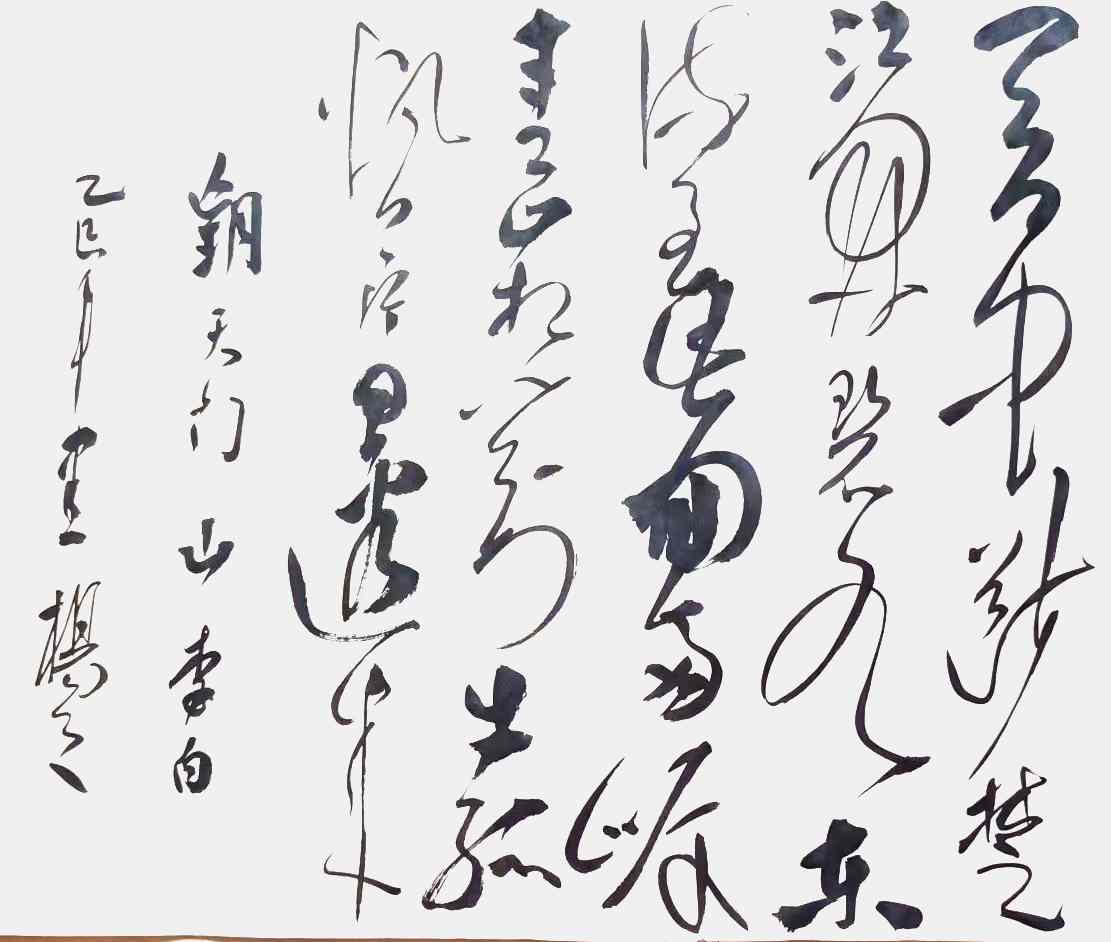 天门中断楚
江開碧水东
流至此回两岸
青山相对出孤
帆一片日边來
天门山 李白
乙巳年 楊